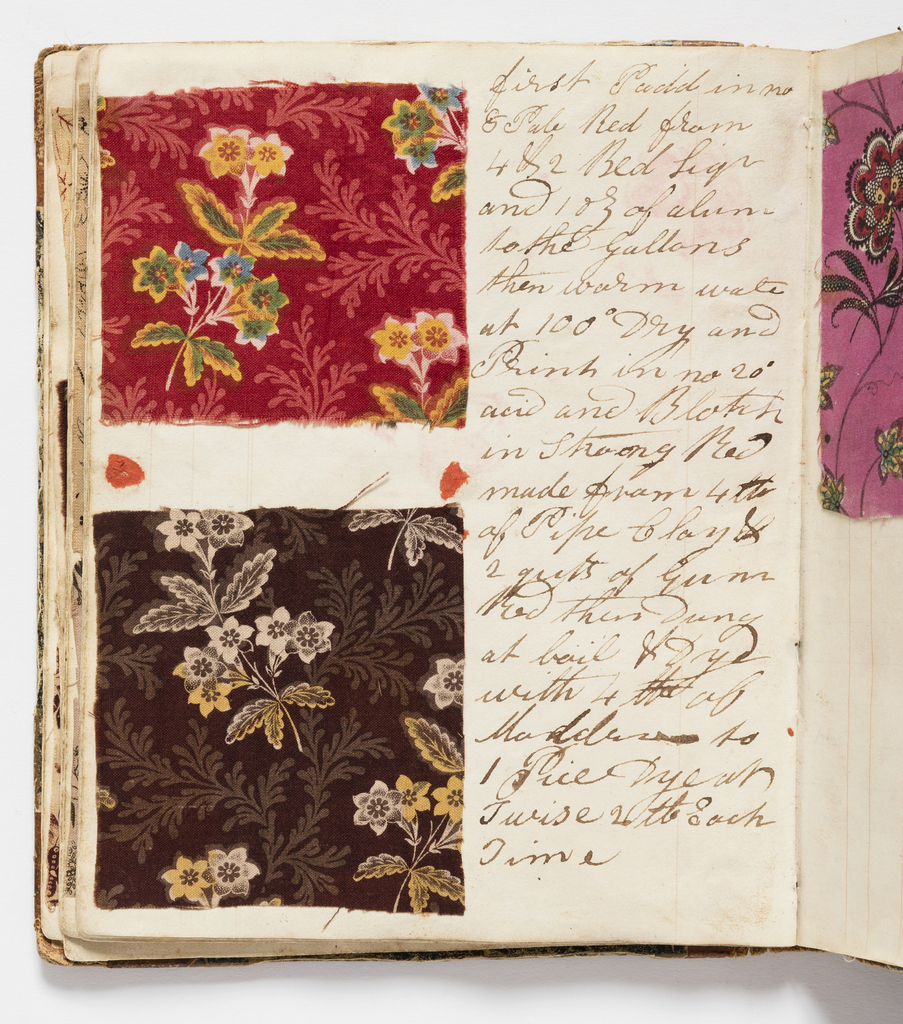 first Padd in no
8 Pale Red from
4 & 2 Red Liqr
and 1 oz of alum
to the Gallons
then warm wate
at 100° Dry and
Print in no 20
acid and Blotch
in Strong Red
made from 4 lb
of Pipe Clay &
2 qurts of Gum
Red then Dung
at boil & Dyd
with 4 lb of
Madder to
1 Pice Dye at
Twise 2 lb Each
Time